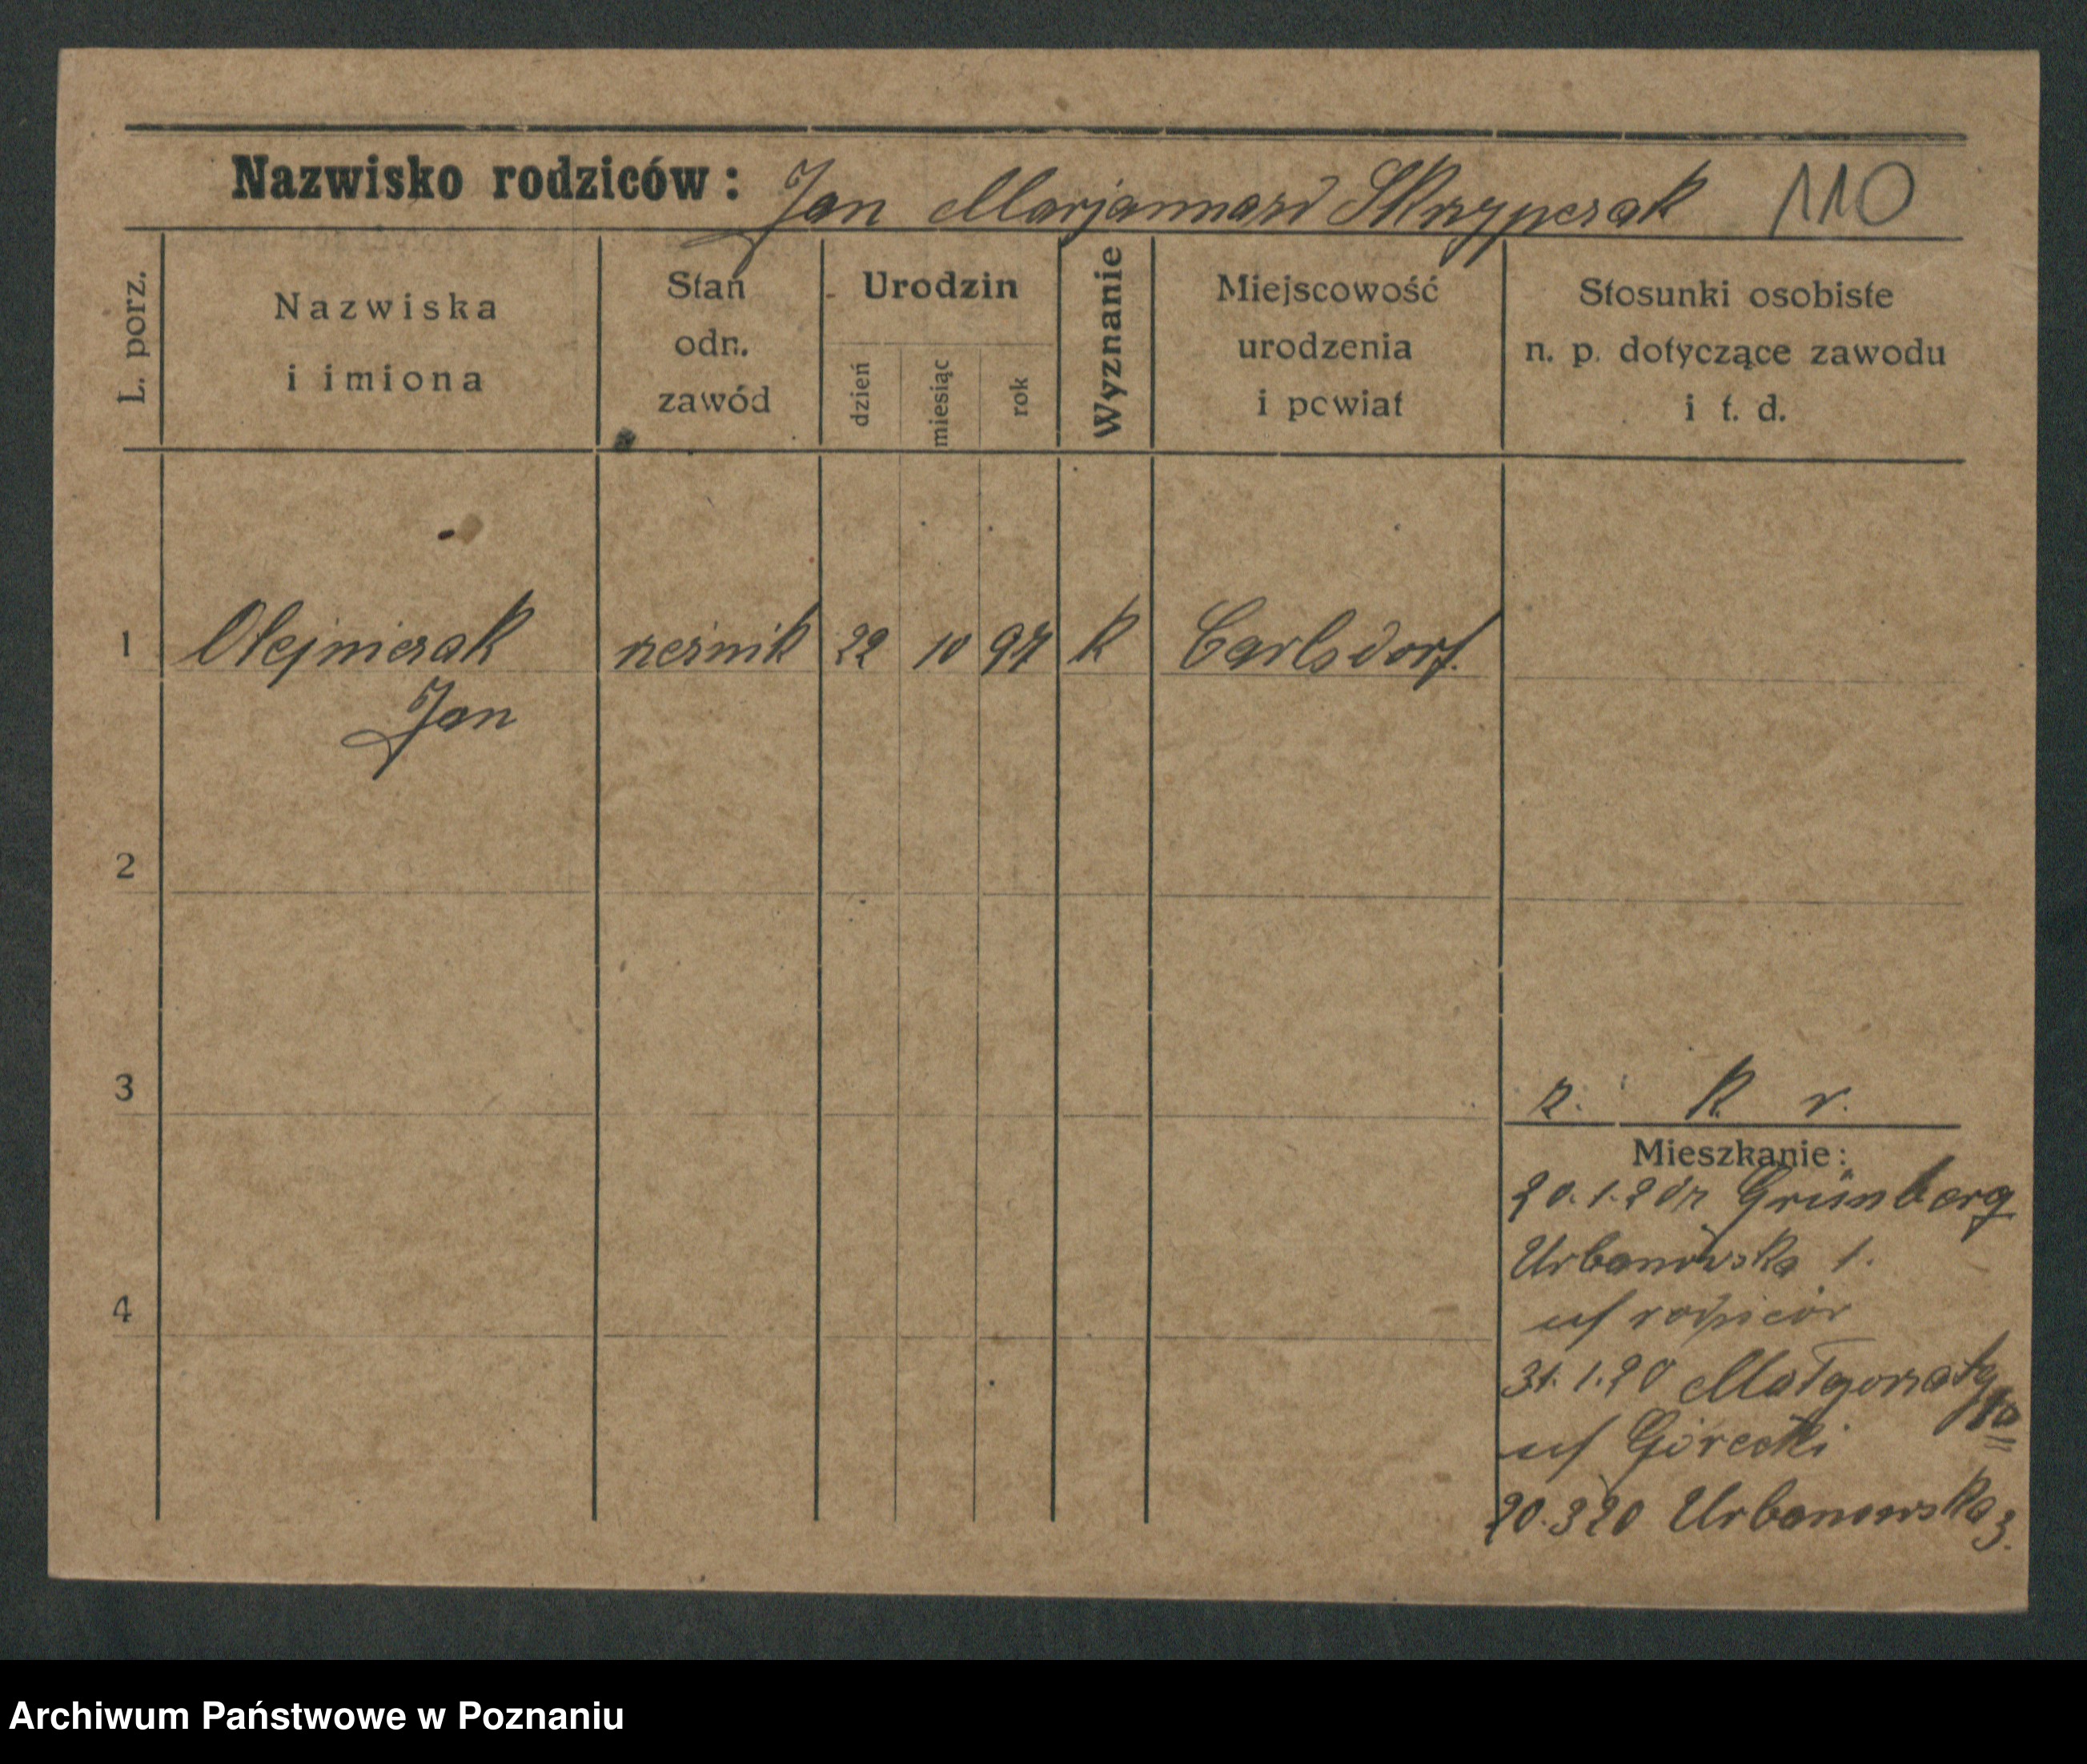 Nazwisko rodziców: Jan Marjanna zd Skrzypczak 110
L. porz.
Nazwiska
i imiona
Stan
odn.
zawód
Urodzin
dzień
miesiąc
rok
Wyznanie
Miejscowość
urodzenia
i powiat
Stosunki osobiste
n. p. dotyczące zawodu
i t. d.
1 Olejniczak rzeźnik 22 10 97 k Carlsdorf.
Jan
2
3
z. k r.
Mieszkanie:
20.1.20 z Grünberg
Urbanowska 1.
u/ rodziców
4
31.1.20 Małgorzaty 10
u/ Górecki
20.3 20 Urbanowska 3.
Archiwum Państwowe w Poznaniu